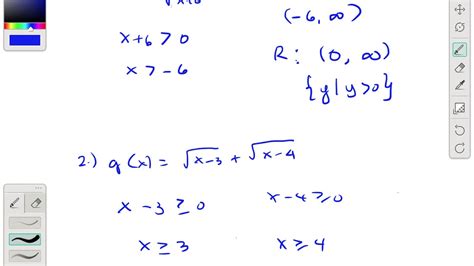 √x+6
(-6, ∞)
x+6 > 0
R: (0, ∞)
x > -6
{y | y>0}
2.) g(x) = √x-3 + √x-4
x - 3 ≥ 0
x-4 ≥ 0
x ≥ 3
x ≥ 4